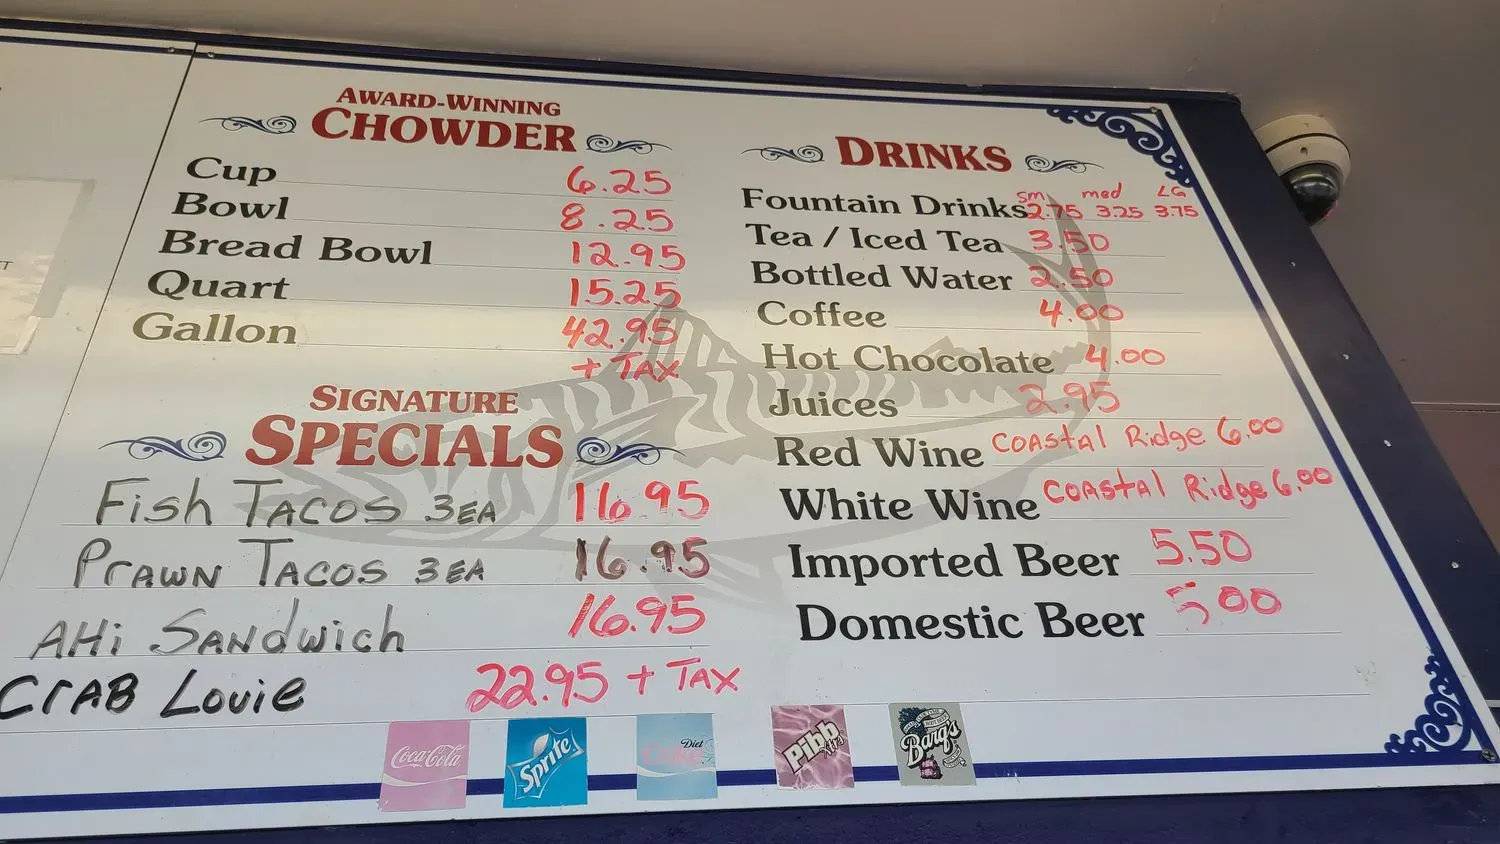 AWARD-WINNING
CHOWDER
Cup 6.25
Bowl 8.25
Bread Bowl 12.95
Quart 15.25
Gallon 42.95
+ TAX
SIGNATURE
SPECIALS
Fish TACOS 3EA 16.95
PrAWN TACOS 3EA 16.95
AHi SANdwich 16.95
CrAB Louie 22.95 + TAX
DRINKS
sm med LG
Fountain Drinks 2.75 3.25 3.75
Tea / Iced Tea 3.50
Bottled Water 2.50
Coffee 4.00
Hot Chocolate 4.00
Juices 2.95
Red Wine COASTAl Ridge 6.00
White Wine COASTAl Ridge 6.00
Imported Beer 5.50
Domestic Beer 5 00
Coca-Cola
Sprite
Diet
Coke
Pibb
Barq's